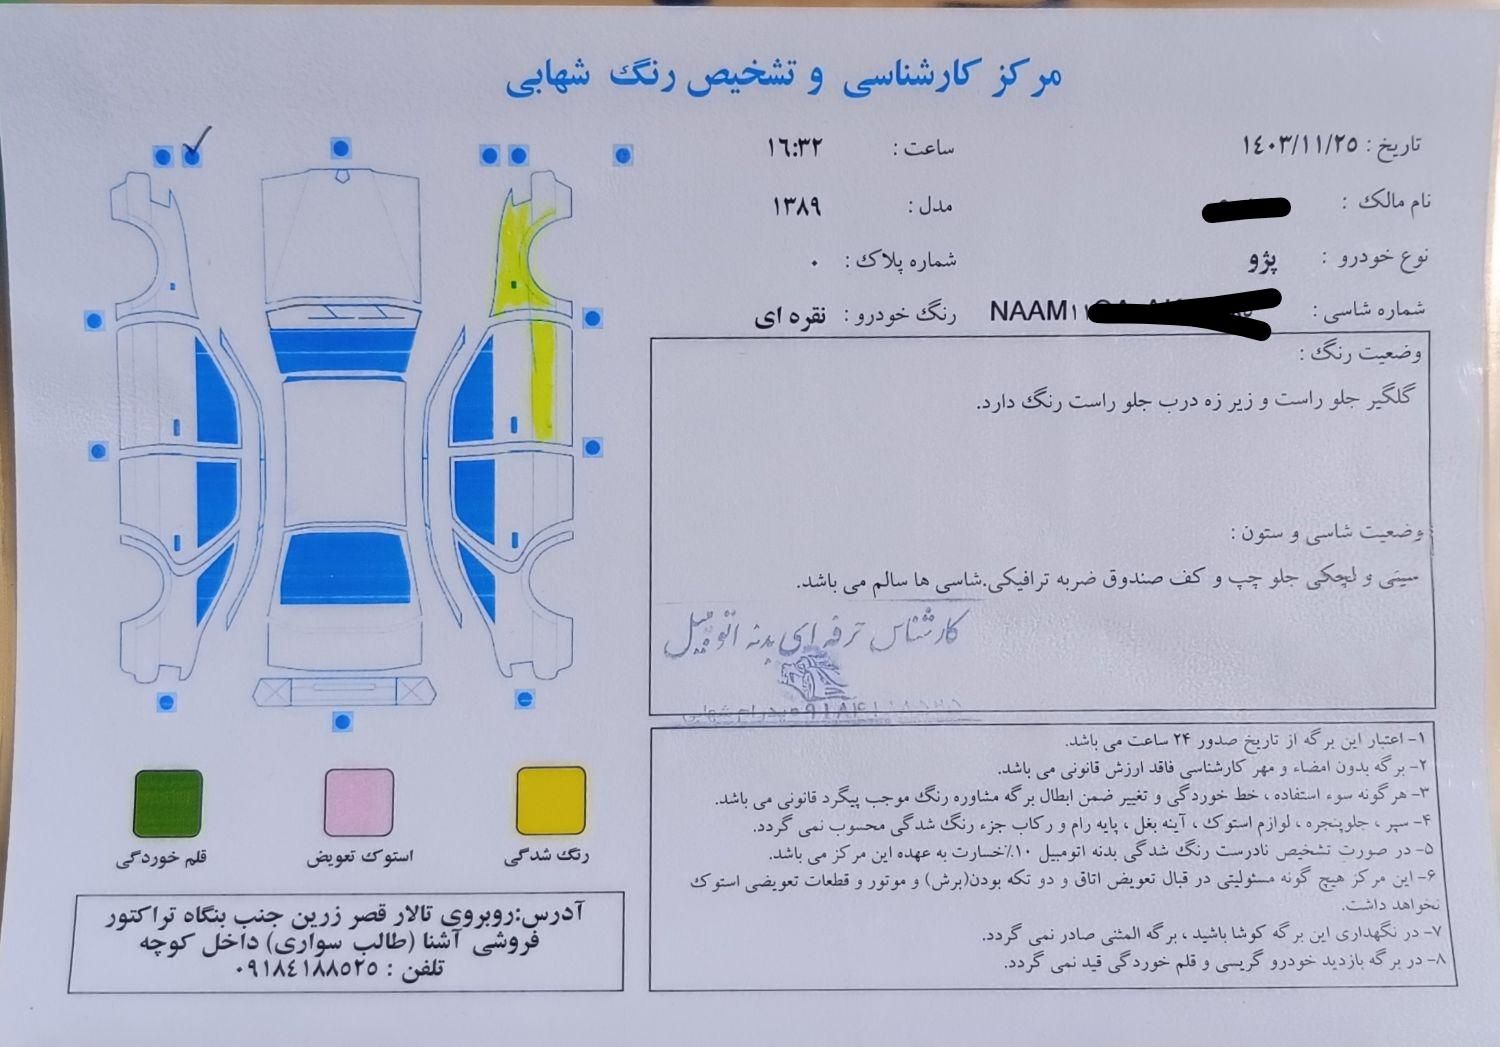 مرکز کارشناسی و تشخیص رنگ شهابی
تاریخ : ۱۴۰۳/۱۱/۲۵
ساعت : ۱۶:۳۲
نام مالک :
مدل : ۱۳۸۹
نوع خودرو : پژو
شماره پلاک : ۰
شماره شاسی : NAAM۱۱
رنگ خودرو : نقره ای
وضعیت رنگ :
گلگیر جلو راست و زیر زه درب جلو راست رنگ دارد.
وضعیت شاسی و ستون :
سینی و لچکی جلو چپ و کف صندوق ضربه ترافیکی.شاسی ها سالم می باشد.
کارشناس حرفه ای بدنه اتومبیل
۱- اعتبار این برگه از تاریخ صدور ۲۴ ساعت می باشد.
۲- برگه بدون امضاء و مهر کارشناسی فاقد ارزش قانونی می باشد.
۳- هرگونه سوء استفاده ، خط خوردگی و تغییر ضمن ابطال برگه مشاوره رنگ موجب پیگرد قانونی می باشد.
۴- سپر ، جلوپنجره ، لوازم استوک ، آینه بغل ، پایه رام و رکاب جزء رنگ شدگی محسوب نمی گردد.
۵- در صورت تشخیص نادرست رنگ شدگی بدنه اتومبیل ۱۰٪خسارت به عهده این مرکز می باشد.
۶- این مرکز هیچ گونه مسئولیتی در قبال تعویض اتاق و دو تکه بودن(برش) و موتور و قطعات تعویضی استوک
نخواهد داشت.
۷- در نگهداری این برگه کوشا باشید ، برگه المثنی صادر نمی گردد.
۸- در برگه بازدید خودرو گریسی و قلم خوردگی قید نمی گردد.
رنگ شدگی
استوک تعویض
قلم خوردگی
آدرس:روبروی تالار قصر زرین جنب بنگاه تراکتور
فروشی آشنا (طالب سواری) داخل کوچه
تلفن : ۰۹۱۸۴۱۸۸۵۲۵